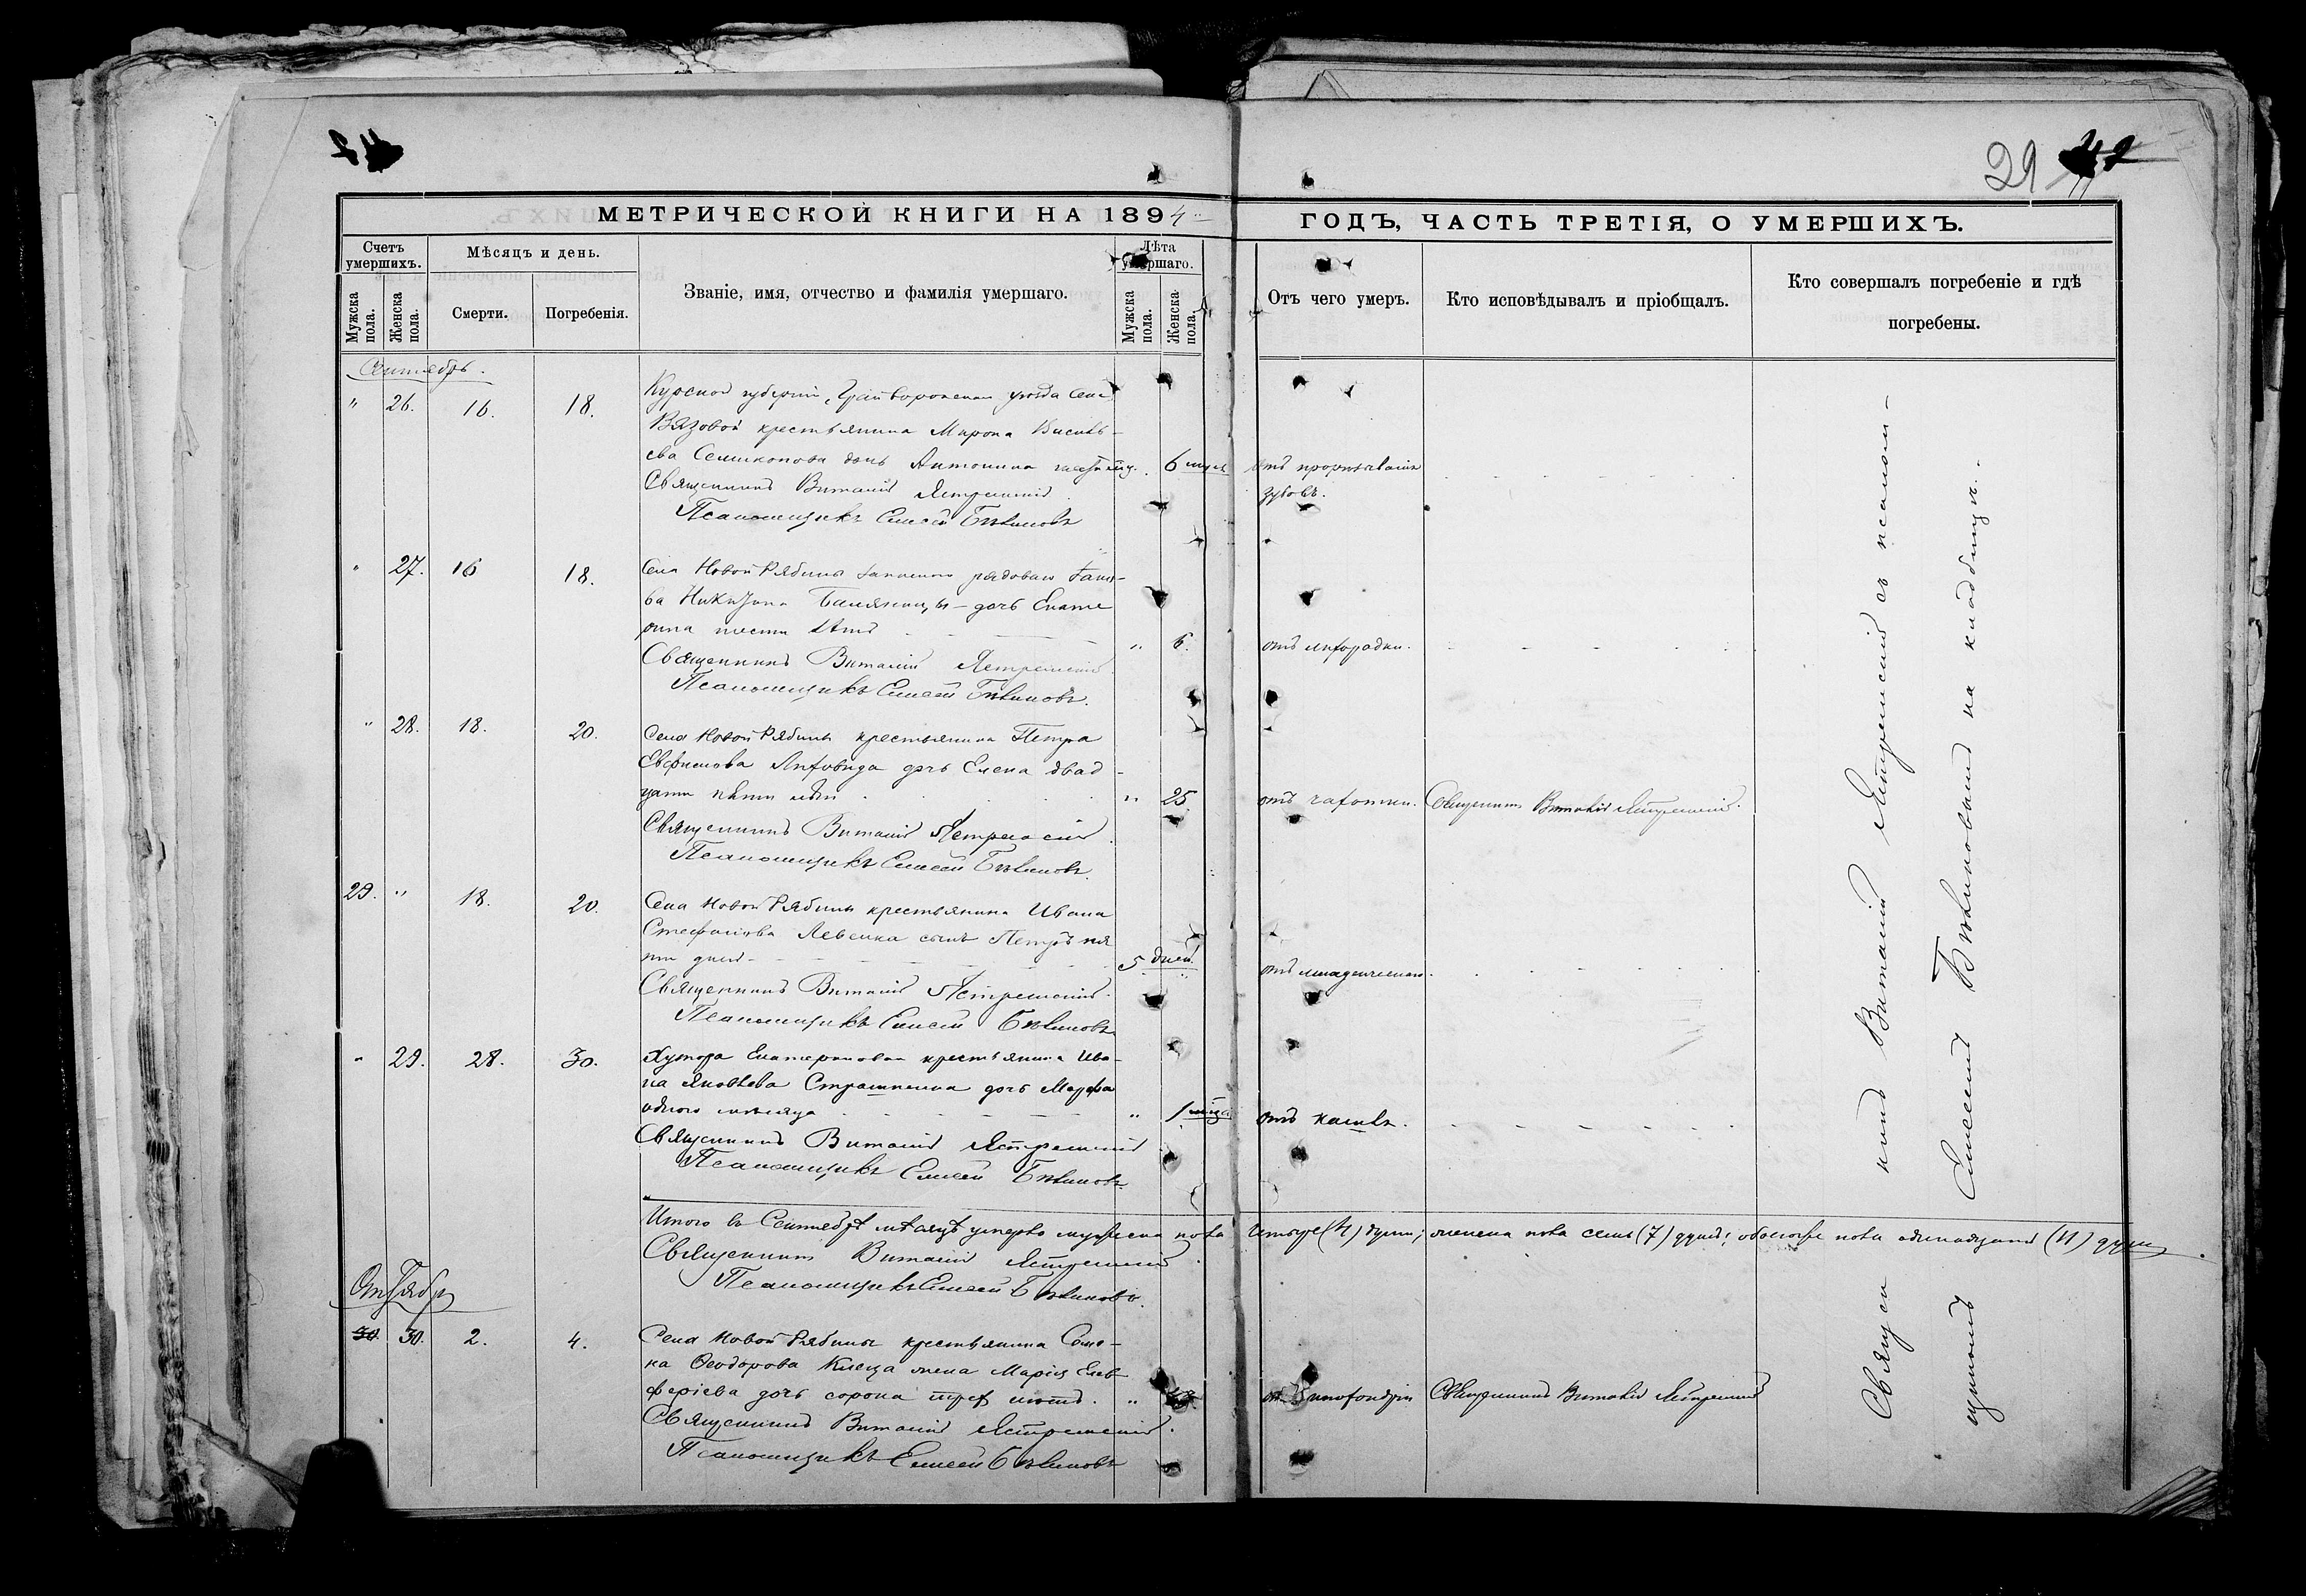 29
МЕТРИЧЕСКОЙ КНИГИ НА 1894 ГОДЪ, ЧАСТЬ ТРЕТІЯ, О УМЕРШИХЪ.
Счетъ умершихъ.
Мѣсяцъ и день.
Званіе, имя, отчество и фамилія умершаго.
Лѣта умершаго.
Отъ чего умеръ.
Кто исповѣдывалъ и пріобщалъ.
Кто совершалъ погребеніе и гдѣ
погребены.
Мужска пола.
Женска пола.
Смерти.
Погребенія.
Мужска пола.
Женска пола.
Сентябрь.
" 26. 16. 18.
Курской губерніи, Грайворонскаго уѣзда села
Вязовой крестьянина Мирона Василь-
ева дочь Антонина 6 мцв отъ прорѣзыванія
зубовъ.
Священникъ Виталій Ястремскій
Псаломщикъ Елисей Бѣликовъ
" 27. 16 18.
Села Новой Рябины рядоваго
дочь Екате
рина шести лѣтъ " 6. отъ лихорадки.
Священникъ Виталій Ястремскій
Псаломщикъ Елисей Бѣликовъ.
" 28. 18. 20.
Села Новой Рябины крестьянина Петра
Евфимова дочь Елена двад-
цати пяти лѣтъ " 25. отъ чахотки. Священникъ Виталій Ястремскій.
Священникъ Виталій Ястремскій
Псаломщикъ Елисей Бѣликовъ.
29. " 18. 20.
Села Новой Рябины крестьянина Ивана
Стефанова Левенка сынъ Петръ пя
ти дней 5 дней. отъ младенческой.
Священникъ Виталій Ястремскій.
Псаломщикъ Елисей Бѣликовъ
" 29. 28. 30.
Хутора крестьянина Ива-
на Яковлева Страшненка дочь Марфа
одного мѣсяца " 1 мѣца отъ кашля.
Священникъ Виталій Ястремскій
Псаломщикъ Елисей Бѣликовъ.
Итого въ Сентябрѣ мѣсяцѣ умерло мужеска пола четыре (4) души; женска пола семь (7) душъ; обоего пола одинадцать (11) душъ.
Священникъ Виталій Ястремскій
Псаломщикъ Елисей Бѣликовъ.
Октябрь
30. 30. 2. 4.
Села Новой Рябины крестьянина Само-
на Ѳеодорова жена Марія Елев-
феріева дочь сорока трех лѣтъ. " Священникъ Виталій Ястремскій
Священникъ Виталій Ястремскій.
Псаломщикъ Елисей Бѣликовъ
Священникъ Виталій Ястремскій съ псалом-
щикомъ Елисеемъ Бѣликовымъ на кладбищѣ.